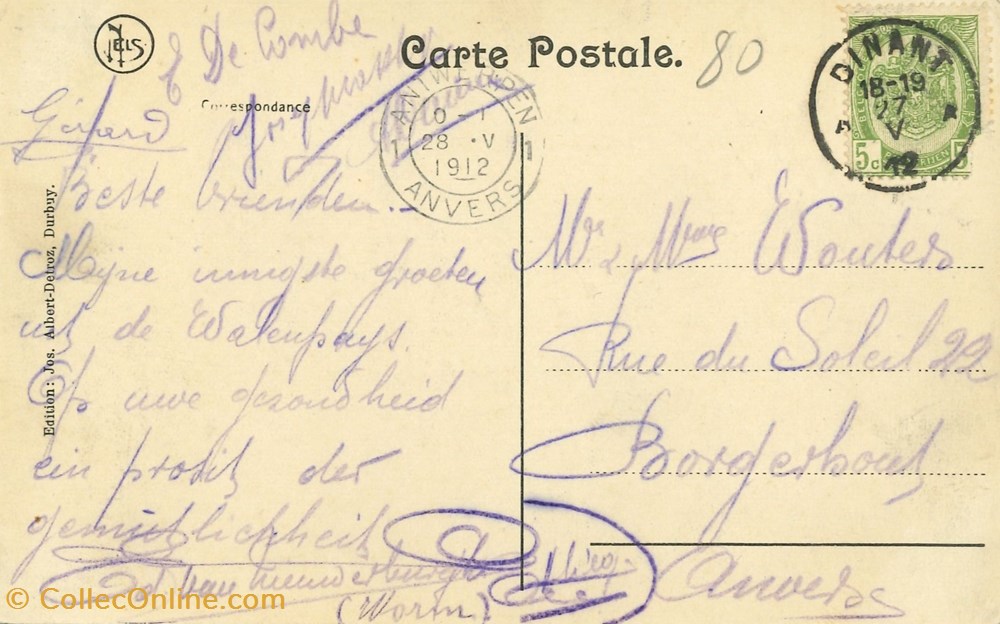 NELS
E De Combe
Carte Postale.
80
DINANT
18-19
27
V
12
5c 5c
Correspondance
Gérard
ANTWERPEN
0-1
28 · V
1912
ANVERS
1 1
Beste vrienden.
Mijne innigste groeten
uit de Walenpays.
Op uwe gezondheid
ein prosit der
gemütlichkeit
(Worm)
Mr & Mme Wouters
Rue du Soleil 22
Borgerhout
Anvers
Edition: Jos. Albert-Detroz, Durbuy.
© CollecOnline.com